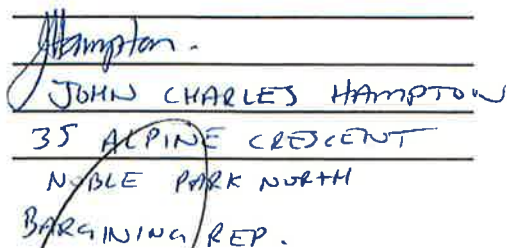 JHampton.
JOHN CHARLES HAMPTON
35 ALPINE CRESCENT
NOBLE PARK NORTH
BARGINING REP.